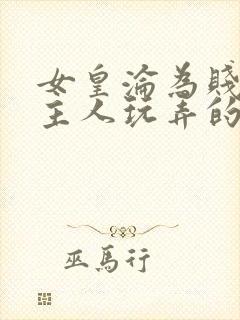 女皇淪為賤
主人玩弄的
巫馬行